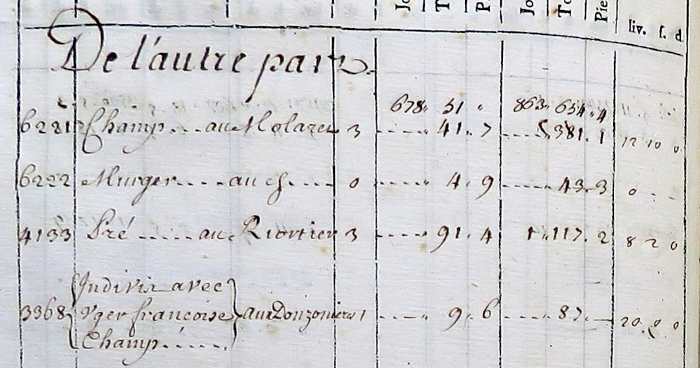 Jo T P Jo To Pie liv. s. d.
De l'autre part
678 51 " 863 654 4
6221 Champ .... au Molarer 3 ..... 41. 7 ..... 381. 1 12 10 0
6222 Murger .... au ch 0 ..... 4. 9 ..... 43. 3 0 - -
4133 Pré ...... au Riortier 3 ..... 91. 4 1. 117. 2 8 2 0
Indivis avec
3368 Yger francoise aux Donzoniers 1 ..... 9. 6 ..... 87. — 20. 0 0
Champ.......